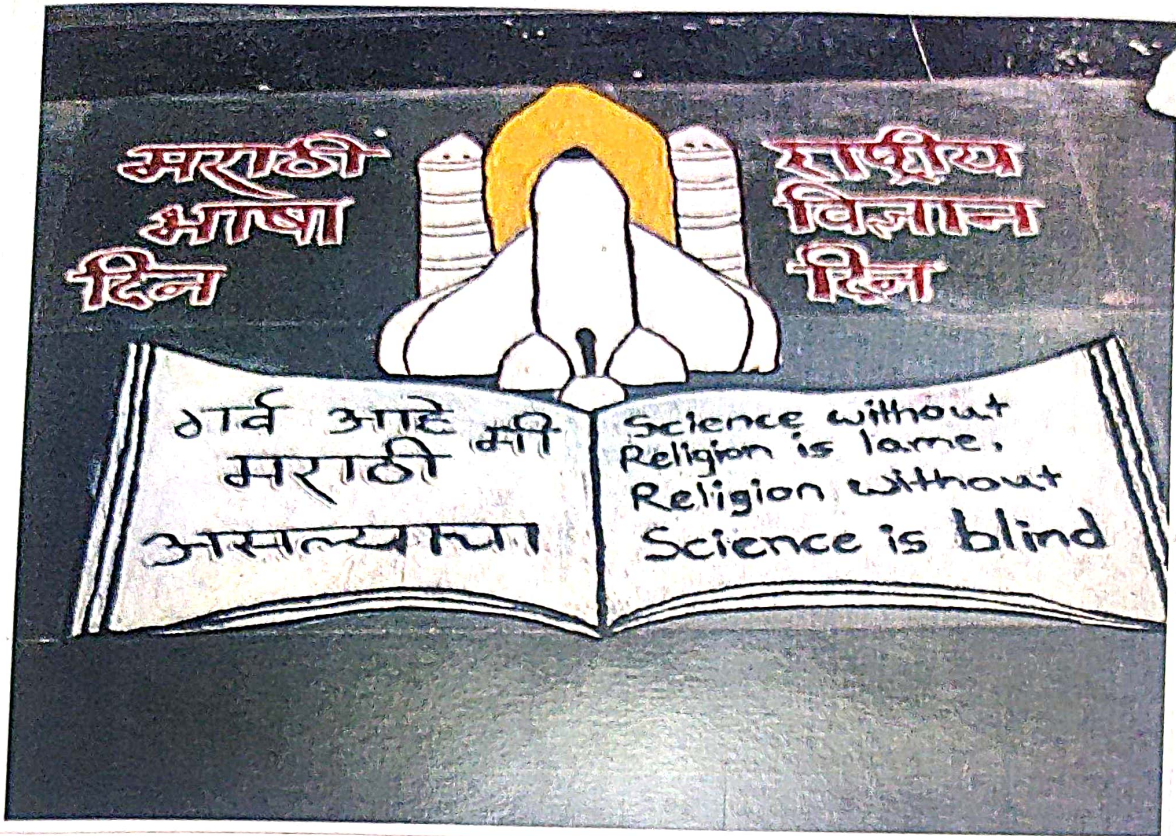 मराठी
भाषा
दिन
राष्ट्रीय
विज्ञान
दिन
गर्व आहे मी
मराठी
असल्याचा
Science without
Religion is lame,
Religion without
Science is blind